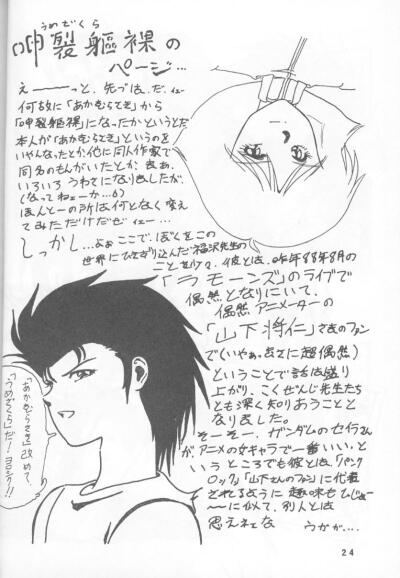 うめざくら
呻裂軀裸の
ページ…
えーーっと、先づは、だ、ィェー
何故に「あかむらさき」から
「呻裂軀裸」になったかというとだ
本人が「あかむらさき」というのを
いやんなったとか他に同人作家で
同名のもんがいたとか、まぁ、
いろいろうわさになりましたが、
(なってねェーか…。)
ほんとーの所は何となく変え
てみただけだぜィェー…
しっかし…よぉここで、ぼくをこの
世界にひきずり込んだ福沢先生の
ことを少々、彼とは、昨年88年8月の
「ラモーンズ」のライブで
偶然となりにいて、
偶然アニメーターの
「山下将仁」さんのファン
で(いやぁ、まさに超偶然)
ということで話は盛り
上がり、こくぜんじ先生たち
とも深く知りあうことと
なりました。
そーそー、ガンダムのセイラさん
が、アニメの女キャラで一番いい、と
いうところでも彼とは、「パンク
ロック」「山下さんのファン」に代表
されるように趣味もひじょー
ーに似て、別人とは
思えねェな
うがが….
「あかむらさき」改めて、
「うめざくら」だ!ヨロシク!!
24